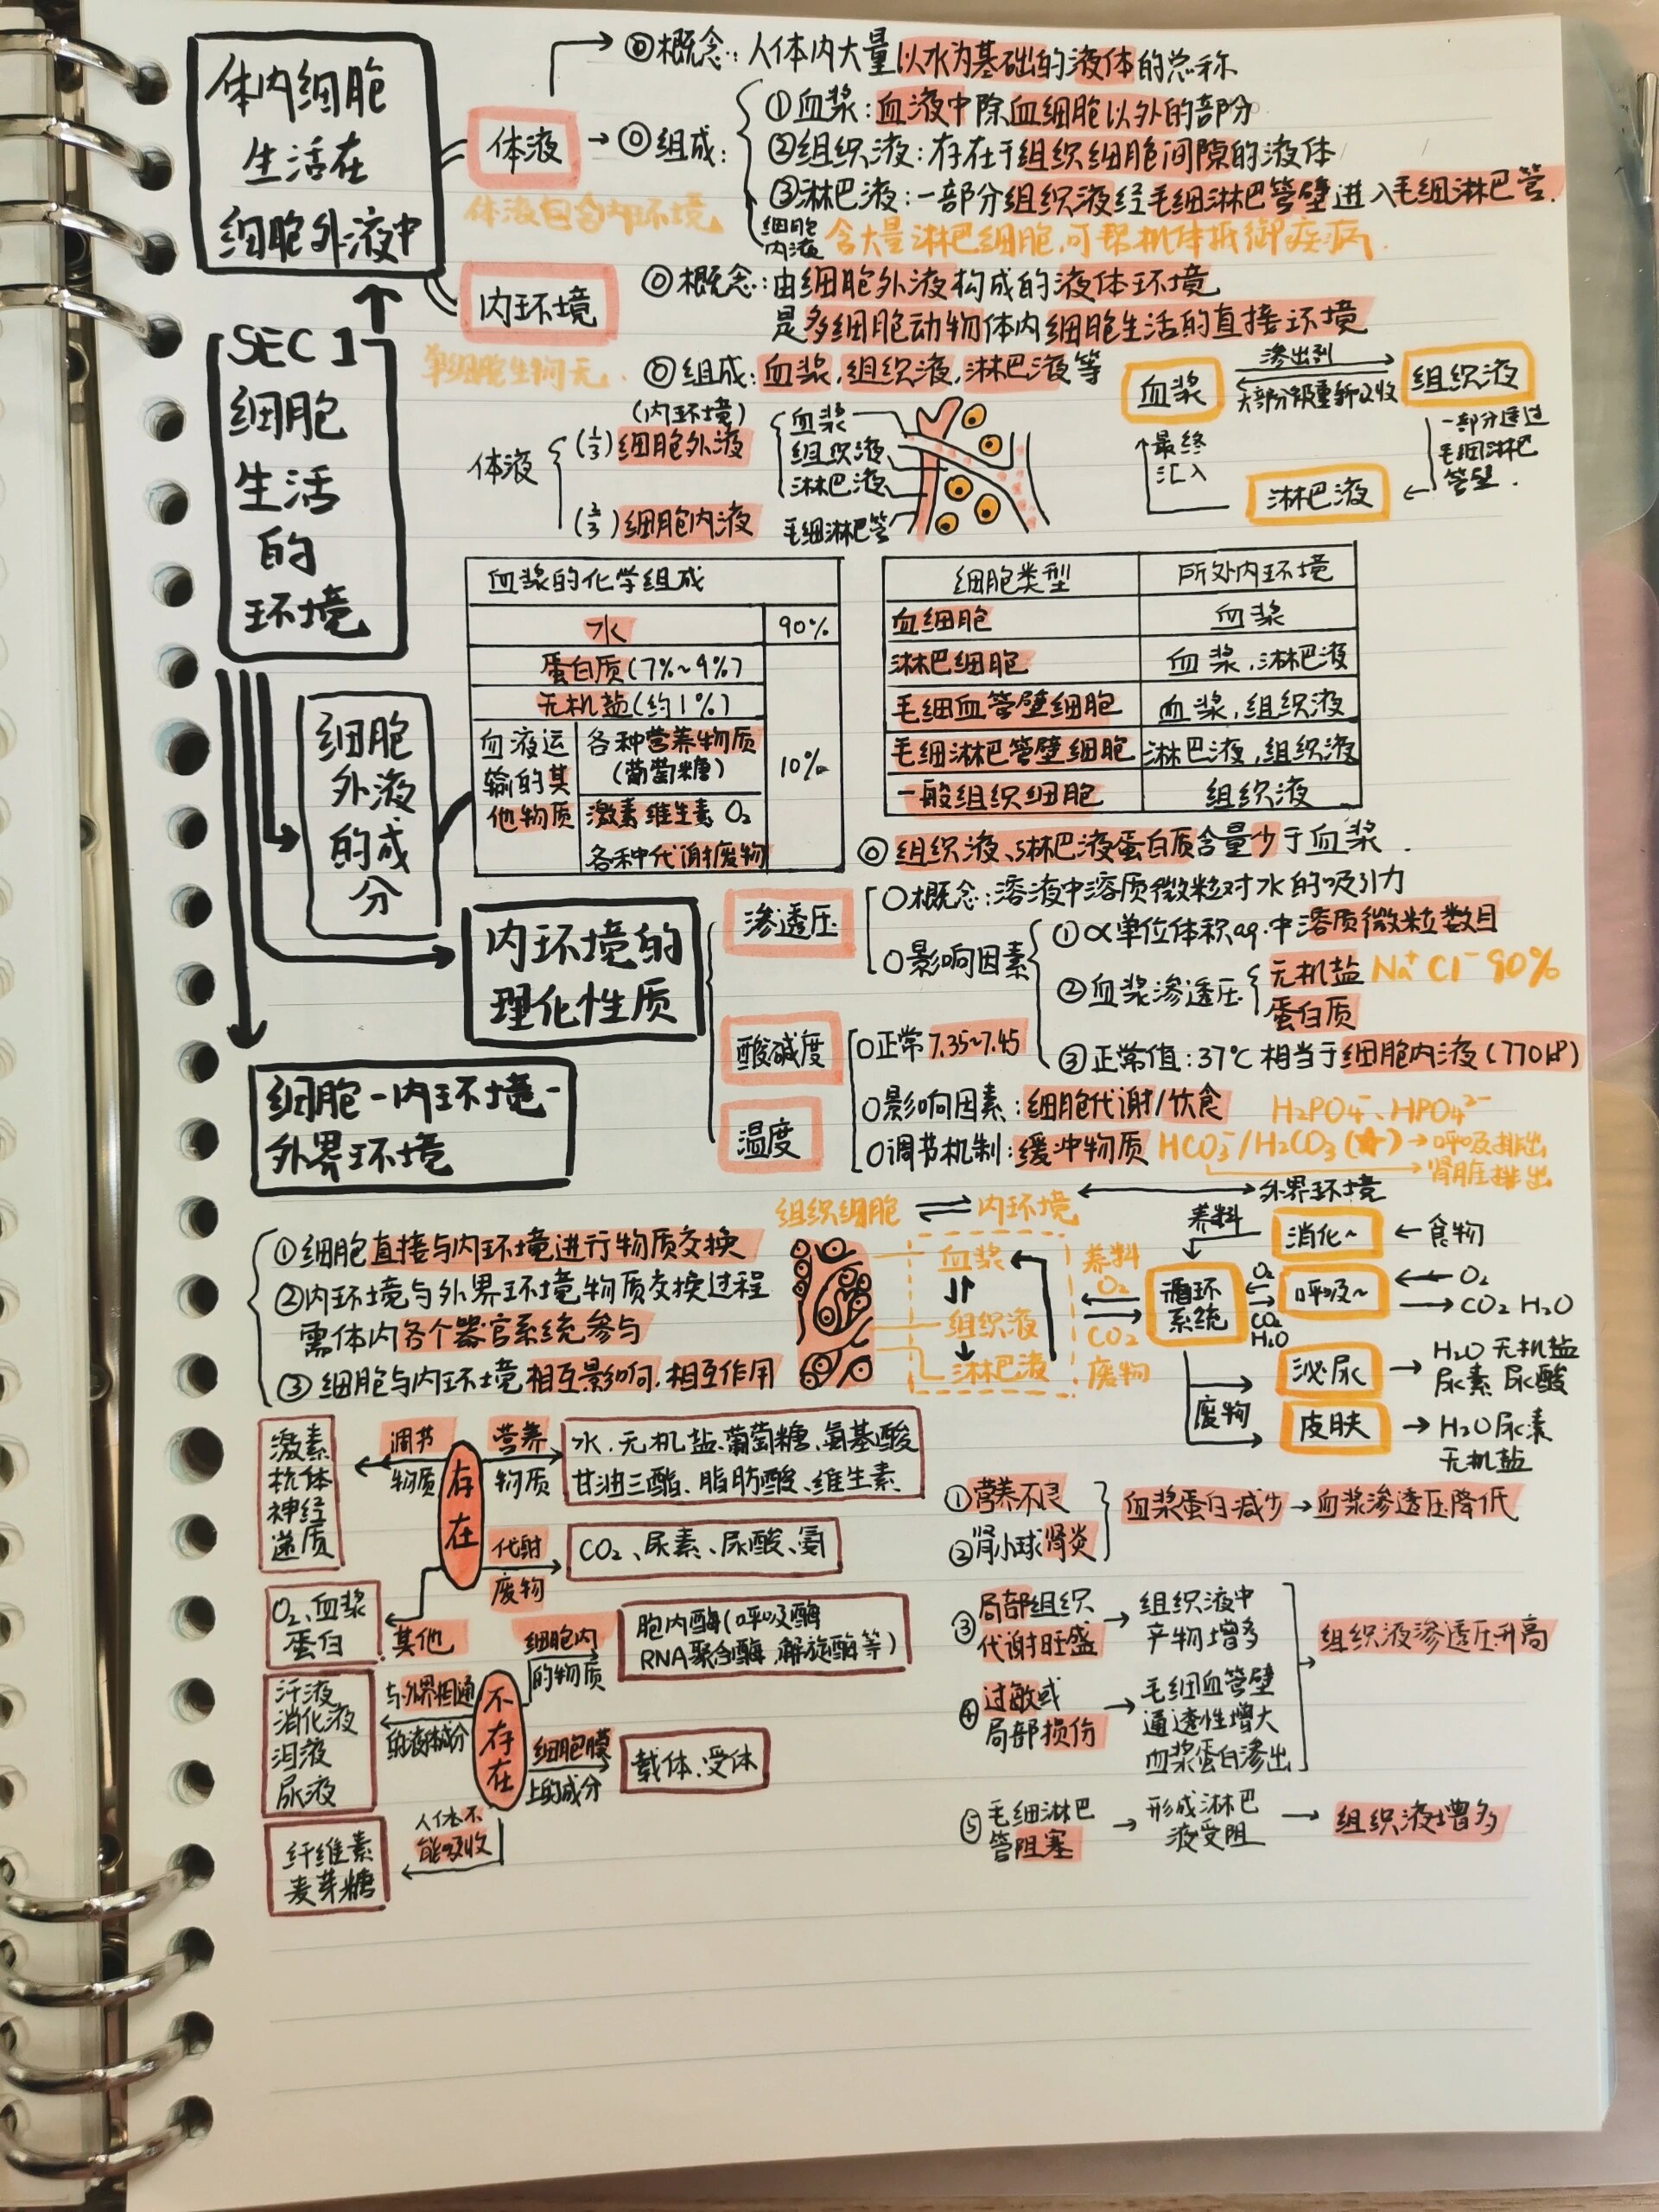 体内细胞
生活在
细胞外液中
SEC 1
细胞
生活
的
环境
体液
◎概念：人体内大量以水为基础的液体的总称
→◎组成：
①血浆：血液中除血细胞以外的部分
②组织液：存在于组织细胞间隙的液体
③淋巴液：一部分组织液经毛细淋巴管壁进入毛细淋巴管.
细胞
内液
含大量淋巴细胞,可帮机体抵御疾病.
体液包含内环境
内环境
◎概念：由细胞外液构成的液体环境
是多细胞动物体内细胞生活的直接环境
单细胞生物无.
◎组成：血浆,组织液,淋巴液等
体液
(内环境)
(1/3)细胞外液
(2/3)细胞内液
血浆
组织液
淋巴液
毛细淋巴管
血浆
渗出到
大部分被重新吸收
组织液
一部分透过
毛细淋巴
管壁.
淋巴液
最终
汇入
细胞
外液
的成
分
血浆的化学组成
水 90%
蛋白质(7%~9%)
无机盐(约1%)
血液运
输的其
他物质
各种营养物质
(葡萄糖)
激素 维生素 O₂
各种代谢废物
10%
细胞类型 所处内环境
血细胞 血浆
淋巴细胞 血浆,淋巴液
毛细血管壁细胞 血浆,组织液
毛细淋巴管壁细胞 淋巴液,组织液
一般组织细胞 组织液
◎组织液、淋巴液蛋白质含量少于血浆.
内环境的
理化性质
渗透压
O概念：溶液中溶质微粒对水的吸引力
O影响因素
①∝单位体积aq.中溶质微粒数目
②血浆渗透压
无机盐 Na⁺ Cl⁻ 90%
蛋白质
③正常值：37℃ 相当于细胞内液(770kP)
酸碱度
O正常7.35~7.45
O影响因素：细胞代谢/饮食
O调节机制：缓冲物质
H₂PO₄⁻、HPO₄²⁻
HCO₃⁻/H₂CO₃(☆)→呼吸排出
→肾脏排出
温度
细胞-内环境-
外界环境
①细胞直接与内环境进行物质交换
②内环境与外界环境物质交换过程
需体内各个器官系统参与
③细胞与内环境相互影响,相互作用
组织细胞 ⇌ 内环境 ↔ 外界环境
血浆
组织液
淋巴液
养料
O₂
CO₂
废物
循环
系统
养料
消化~ ← 食物
O₂
CO₂
H₂O
呼吸~ ← O₂
→ CO₂ H₂O
废物
泌尿 → H₂O 无机盐
尿素 尿酸
皮肤 → H₂O 尿素
无机盐
存在
调节
物质
激素
抗体
神经
递质
营养
物质
水、无机盐、葡萄糖、氨基酸
甘油三酯、脂肪酸、维生素
代射
废物
CO₂、尿素、尿酸、氨
其他
O₂、血浆
蛋白
不存在
细胞内
的物质
胞内酶(呼吸酶
RNA聚合酶,解旋酶等)
与外界相通
的液体成分
汗液
消化液
泪液
尿液
细胞膜
上的成分
载体、受体
人体不
能吸收
纤维素
麦芽糖
①营养不良
②肾小球肾炎
血浆蛋白减少→血浆渗透压降低
③局部组织
代谢旺盛
→组织液中
产物增多
④过敏或
局部损伤
→毛细血管壁
通透性增大
血浆蛋白渗出
组织液渗透压升高
⑤毛细淋巴
管阻塞
→形成淋巴
液受阻
→组织液增多